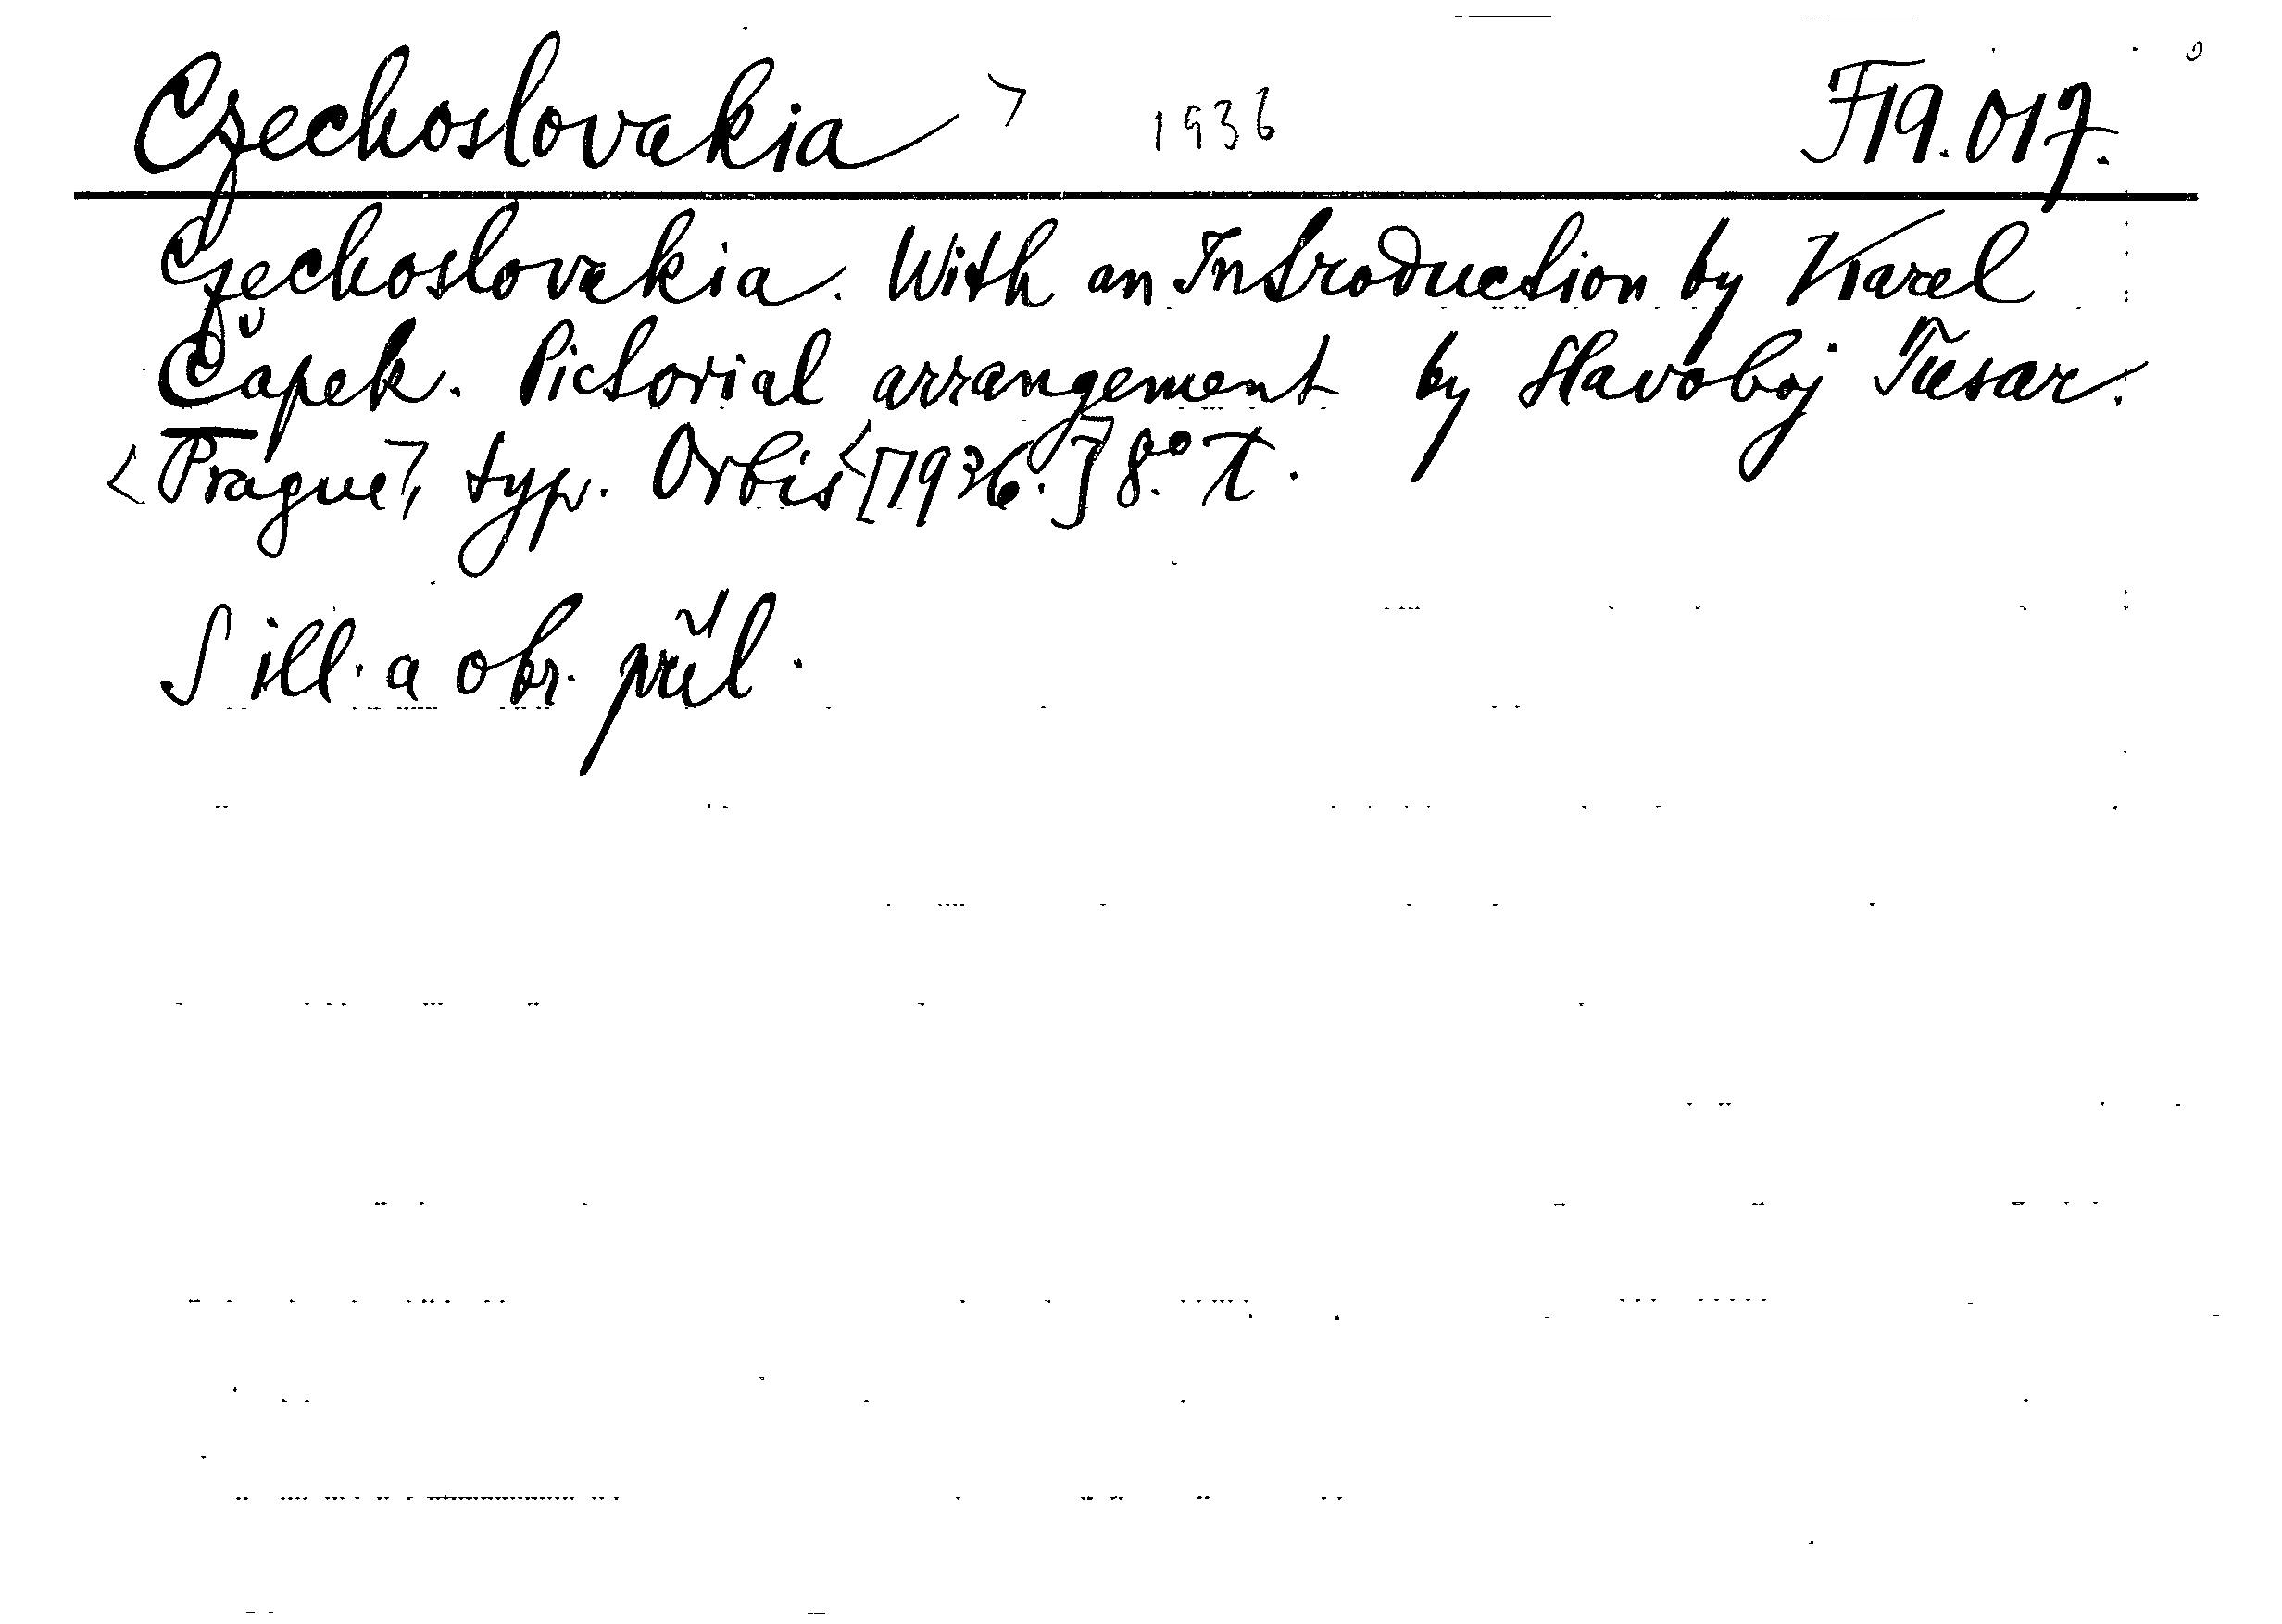 Czechoslovakia > 1936 F 19.017.
Czechoslovakia. With an Introduction by Karel
Čapek. Pictorial arrangement by Slavoboj Tusar.
<Prague>, typ. Orbis <[1936.]> 8.° T.
S ill. a obr. příl.